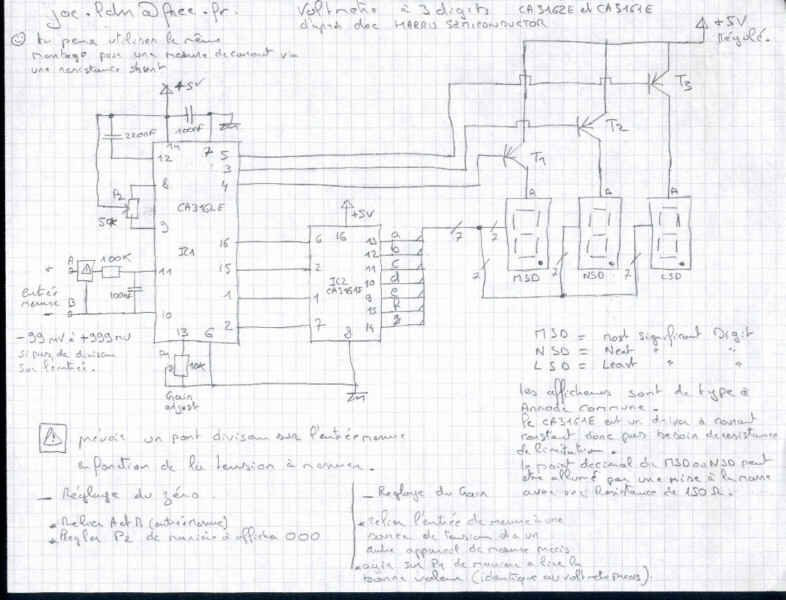 joe.pdn@free.fr.
Voltmètre à 3 digits CA3162E et CA3161E
d'après doc HARRIS SEMICONDUCTOR
tu peux utiliser le même
montage pour une mesure de courant via
une resistance shunt
+5V
Régulé.
+5V
220nF
100nF
T3
T2
T1
14
12
7
5
3
4
8
9
P2
50K
CA3162E
IC1
A A A
A
100K
11
100nF
entrée
mesure
B
10
16
15
1
2
13
6
+5V
6
16
2
1
7
IC2
CA3161E
8
13 a
12 b
11 c
10 d
9 e
15 f
14 g
7
7
7
7
7
MSD
NSD
LSD
-99mV à +999mV
si pas de division
sur l'entrée.
P1
10K
Gain
adjust
MSD = most significant Digit
NSD = Next " "
LSD = Least " "
Les afficheurs sont de type à
Annode commune.
Le CA3161E est un driver à courant
constant donc pas besoin de resistance
de limitation.
le point decimal du MSD ou NSD peut
être allumé par une mise à la masse
avec une Resistance de 150Ω.
prévoir un pont diviseur sur l'entrée mesure
en fonction de la tension à mesurer.
— Réglage du zéro.
Relier A et B (entrée mesure)
Regler P2 de manière à afficher 000
— Reglage du Gain
relier l'entrée de mesure à une
source de tension via un
autre appareil de mesure precis
agir sur P1 de manière a lire la
bonne valeur (identique au voltmetre precis)